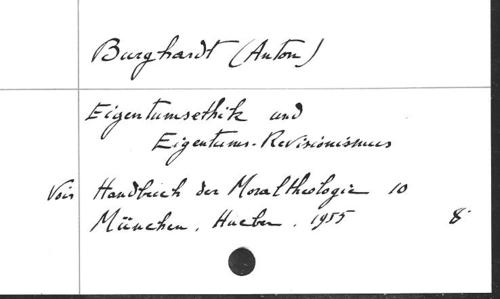 Burghardt (Anton)
Eigentumsethik und
Eigentums-Revisionismus
Voir Handbuch der Moraltheologie 10
München, Hueber, 1955 8°